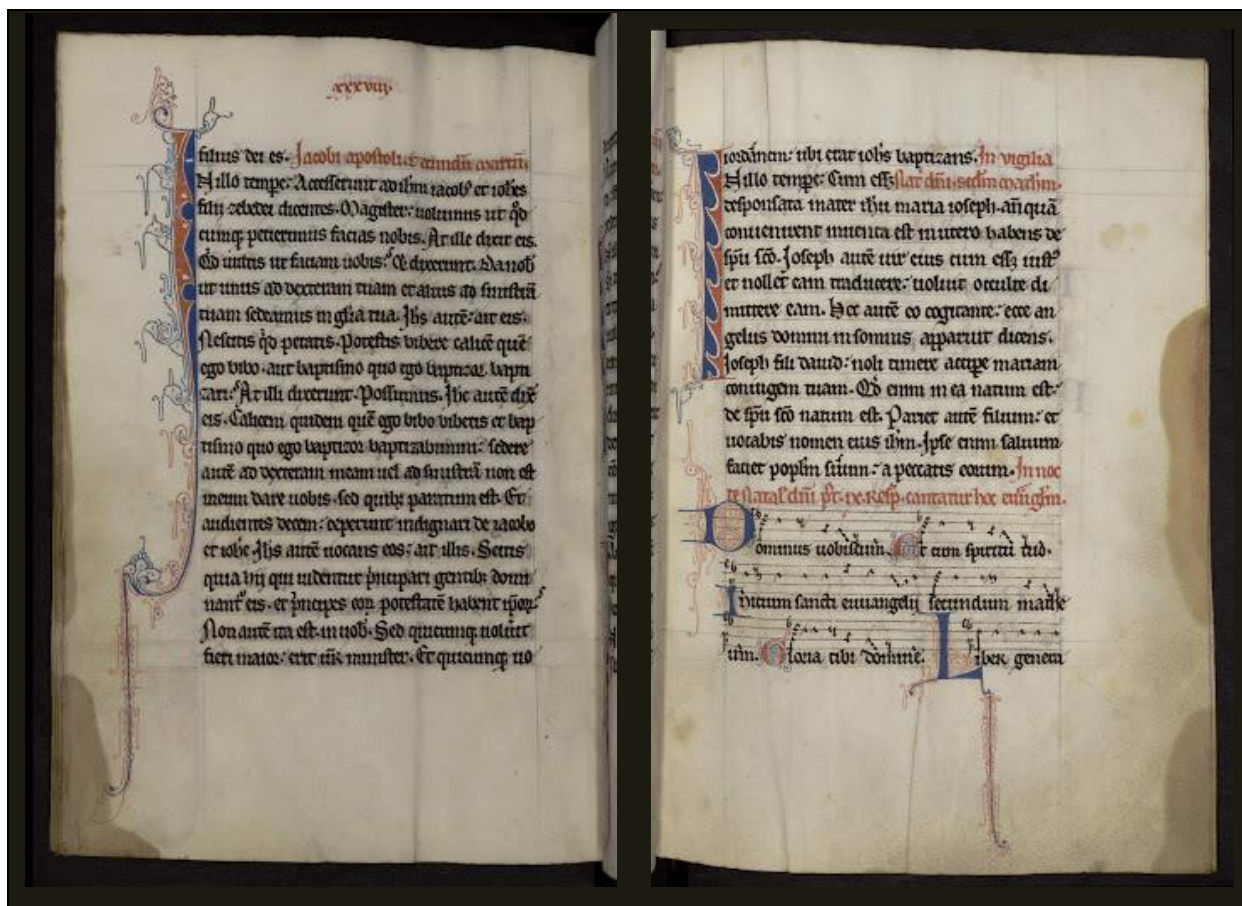 xxxviij.
filius dei es. Jacobi apostoli. secundū marcū.
N illo tempe: Accesserunt ad ihm iacob' et iohes
filij zebedei dicentes. Magister: uolumus ut qd
cumq petierimus facias nobis. At ille dixit eis.
Qd uultis ut faciam uobis: At dixerunt. Da nob
ut unus ad dexteram tuam et alius ad sinistrā
tuam sedeamus in glia tua. Ihs autē: ait eis.
Nescitis qd petatis. Potestis bibere calicē quē
ego bibo. aut baptismo quo ego baptizor bapti
zari: At illi dixerunt. Possumus. Ihc autē dix̄
eis. Calicem quidem quē ego bibo bibetis et bap
tismo quo ego baptizor baptizabimini: sedere
autē ad dexteram meam uel ad sinistrā non est
meum dare uobis. sed quibz paratum est. Et
audientes decem: ceperunt indignari de iacobo
et iohe. Ihs autē uocans eos: ait illis. Scitis
quia hij qui uidentur principari gentibz domi
nant' eis. et principes eor potestatē habent ipor.
Non autē ita est. in uob. Sed quicumq uoluit
fieri maior: erit ur minister. Et quicumq uo
iordanem: ubi erat iohs baptizans. In vigilia
N illo tempe: Cum essz natal dni. secdm machm.
desponsata mater ihu maria ioseph. anquā
conuenirent inuenta est in utero habens de
spu sco. Joseph autē uir eius cum essz iust'
et nollet eam traducere: uoluit occulte di
mittere eam. Hec autē eo cogitante: ecce an
gelus domini in somnis apparuit dicens.
Joseph fili dauid: noli timere accipe mariam
coniugem tuam. Qd enim in ea natum est:
de spu sco natum est. Pariet autē filium: et
uocabis nomen eius ihm. Ipse enim saluum
faciet poplm suum: a peccatis eorum. In noc
te natal' dni pt. ix. Resp. cantatur hoc euuglm.
Dominus uobiscum. Et cum spiritu tuo.
Inicium sancti euuangelij secundum mathe
um. Gloria tibi domine. Liber genera